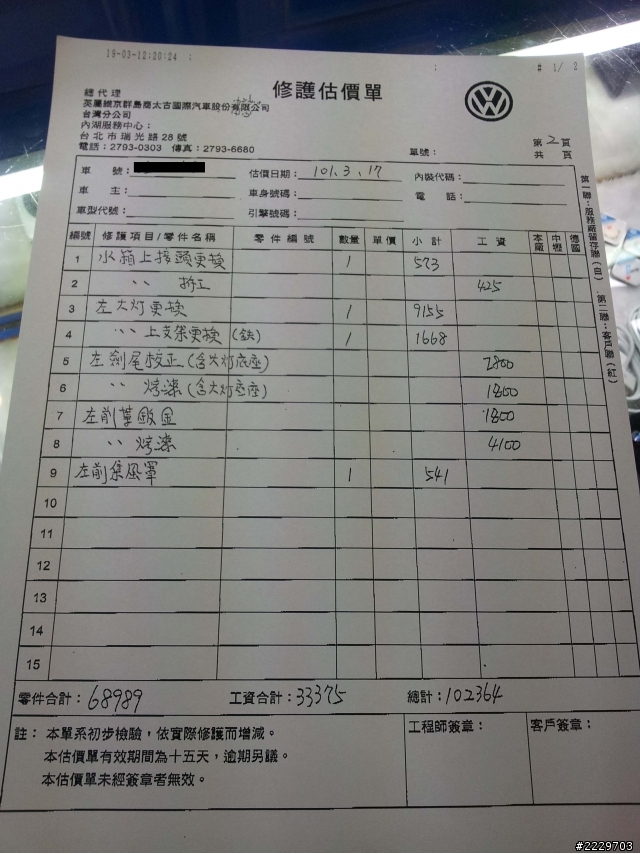 19-03-12;20:24 ;
;
# 1/ 2
修護估價單
總代理
英屬維京群島商太古國際汽車股份有限公司
台灣分公司
內湖服務中心:
台北市瑞光路28號
電話:2793-0303 傳真:2793-6680
單號:
第2頁
共 頁
車號:
估價日期:101.3.17
內裝代碼:
車主:
車身號碼:
電話:
車型代號:
引擎號碼:
編號 修護項目/零件名稱 零件編號 數量 單價 小計 工資 本廠 中壢 德國
1 水箱上接頭更換 1 573
2 〃 拆工 425
3 左大灯更換 1 9155
4 〃 上支架更換 (鈇) 1 1668
5 左劍尾校正(含大灯底座) 2800
6 〃 烤漆(含大灯底座) 1800
7 左前葉鈑金 1800
8 〃 烤漆 4100
9 左前集風罩 1 541
10
11
12
13
14
15
零件合計:68989 工資合計:33375 總計:102364
註:本單系初步檢驗,依實際修護而增減。
本估價單有效期間為十五天,逾期另議。
本估價單未經簽章者無效。
工程師簽章:
客戶簽章:
第一聯:服務廠留存聯(白) 第二聯:客戶聯(紅)
#2229703